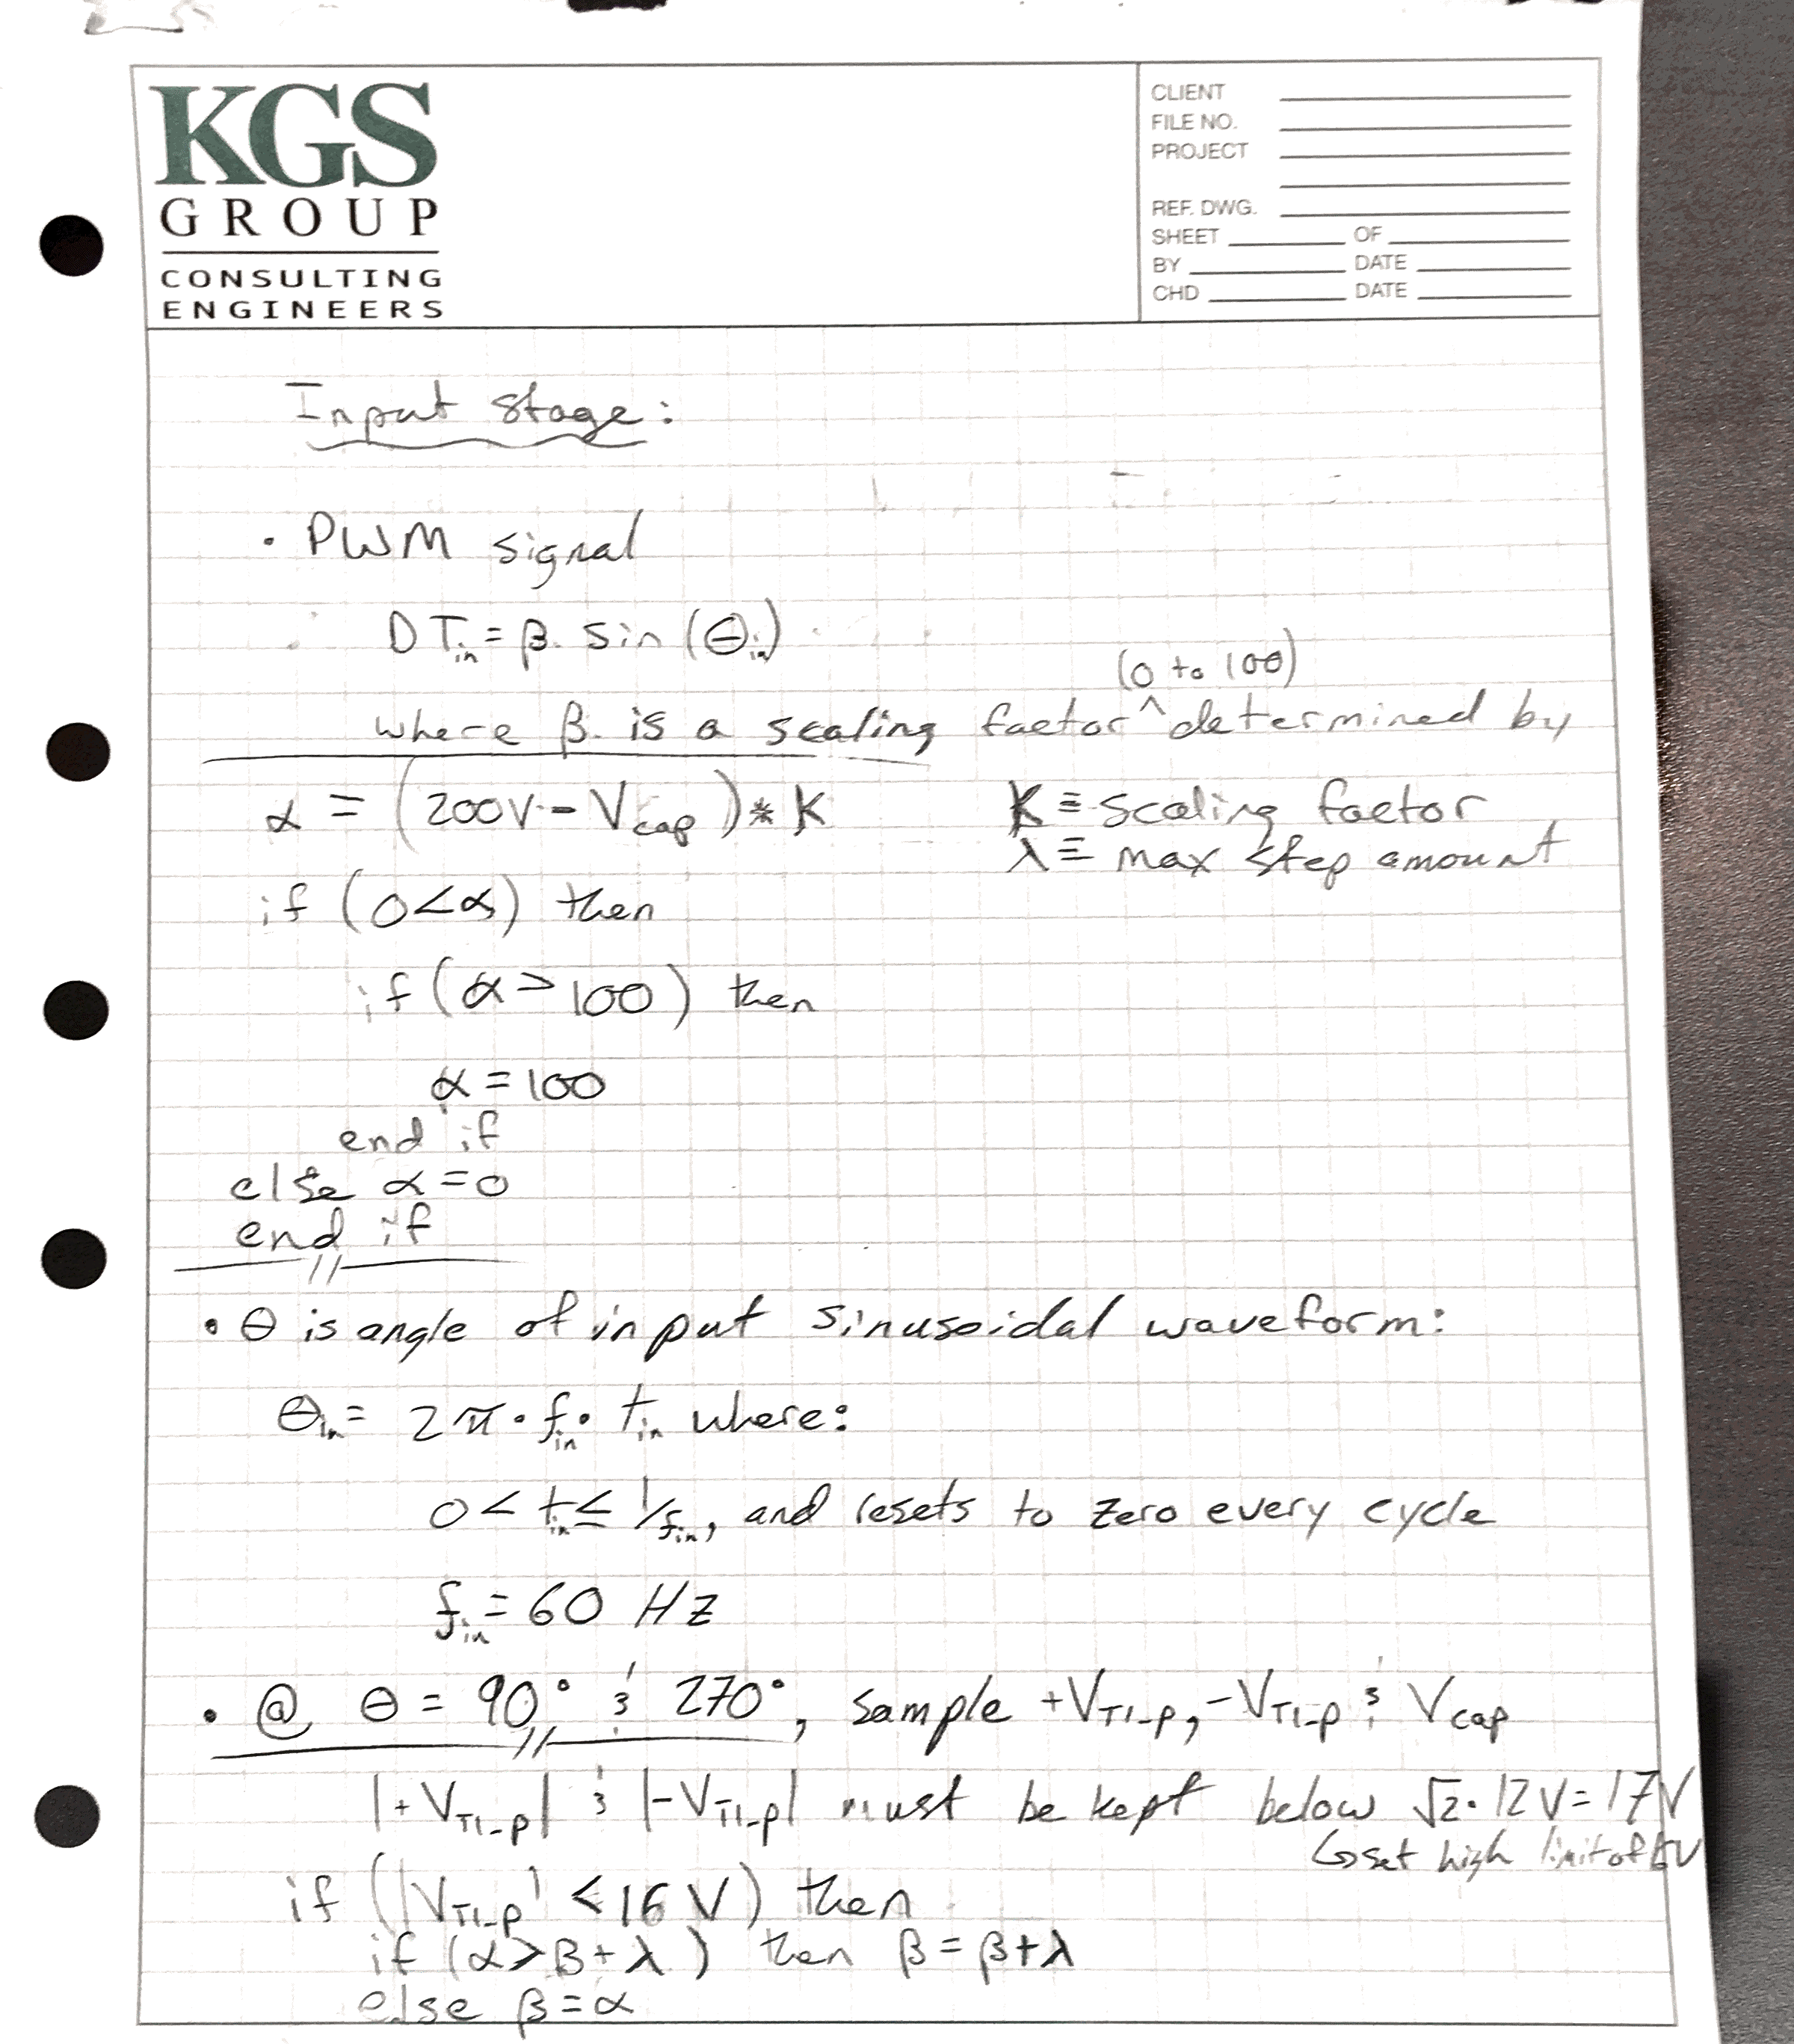 KGS
GROUP
CONSULTING
ENGINEERS
CLIENT
FILE NO.
PROJECT
REF. DWG.
SHEET OF
BY DATE
CHD DATE
Input stage:
• PWM signal
DT_in = β. sin (θ_in)
(0 to 100)
where β. is a scaling factor ^ determined by
α = (200V - V_cap) * K K ≡ scaling factor
λ ≡ max step amount
if (0<α) then
if (α > 100) then
α = 100
end if
else α = 0
end if
• θ is angle of input sinusoidal waveform:
θ_in = 2π • f_in • t_in where:
0 < t_in ≤ 1/f_in, and resets to zero every cycle
f_in = 60 Hz
• @ θ = 90° & 270°, sample +V_T1-P, -V_T1-P & V_cap
|+V_T1-P| & |-V_T1-P| must be kept below √2 • 12V = 17V
↳ set high limit of V
if (|V_T1-P| < 16 V) then
if (α > β + λ) then β = β + λ
else β = α